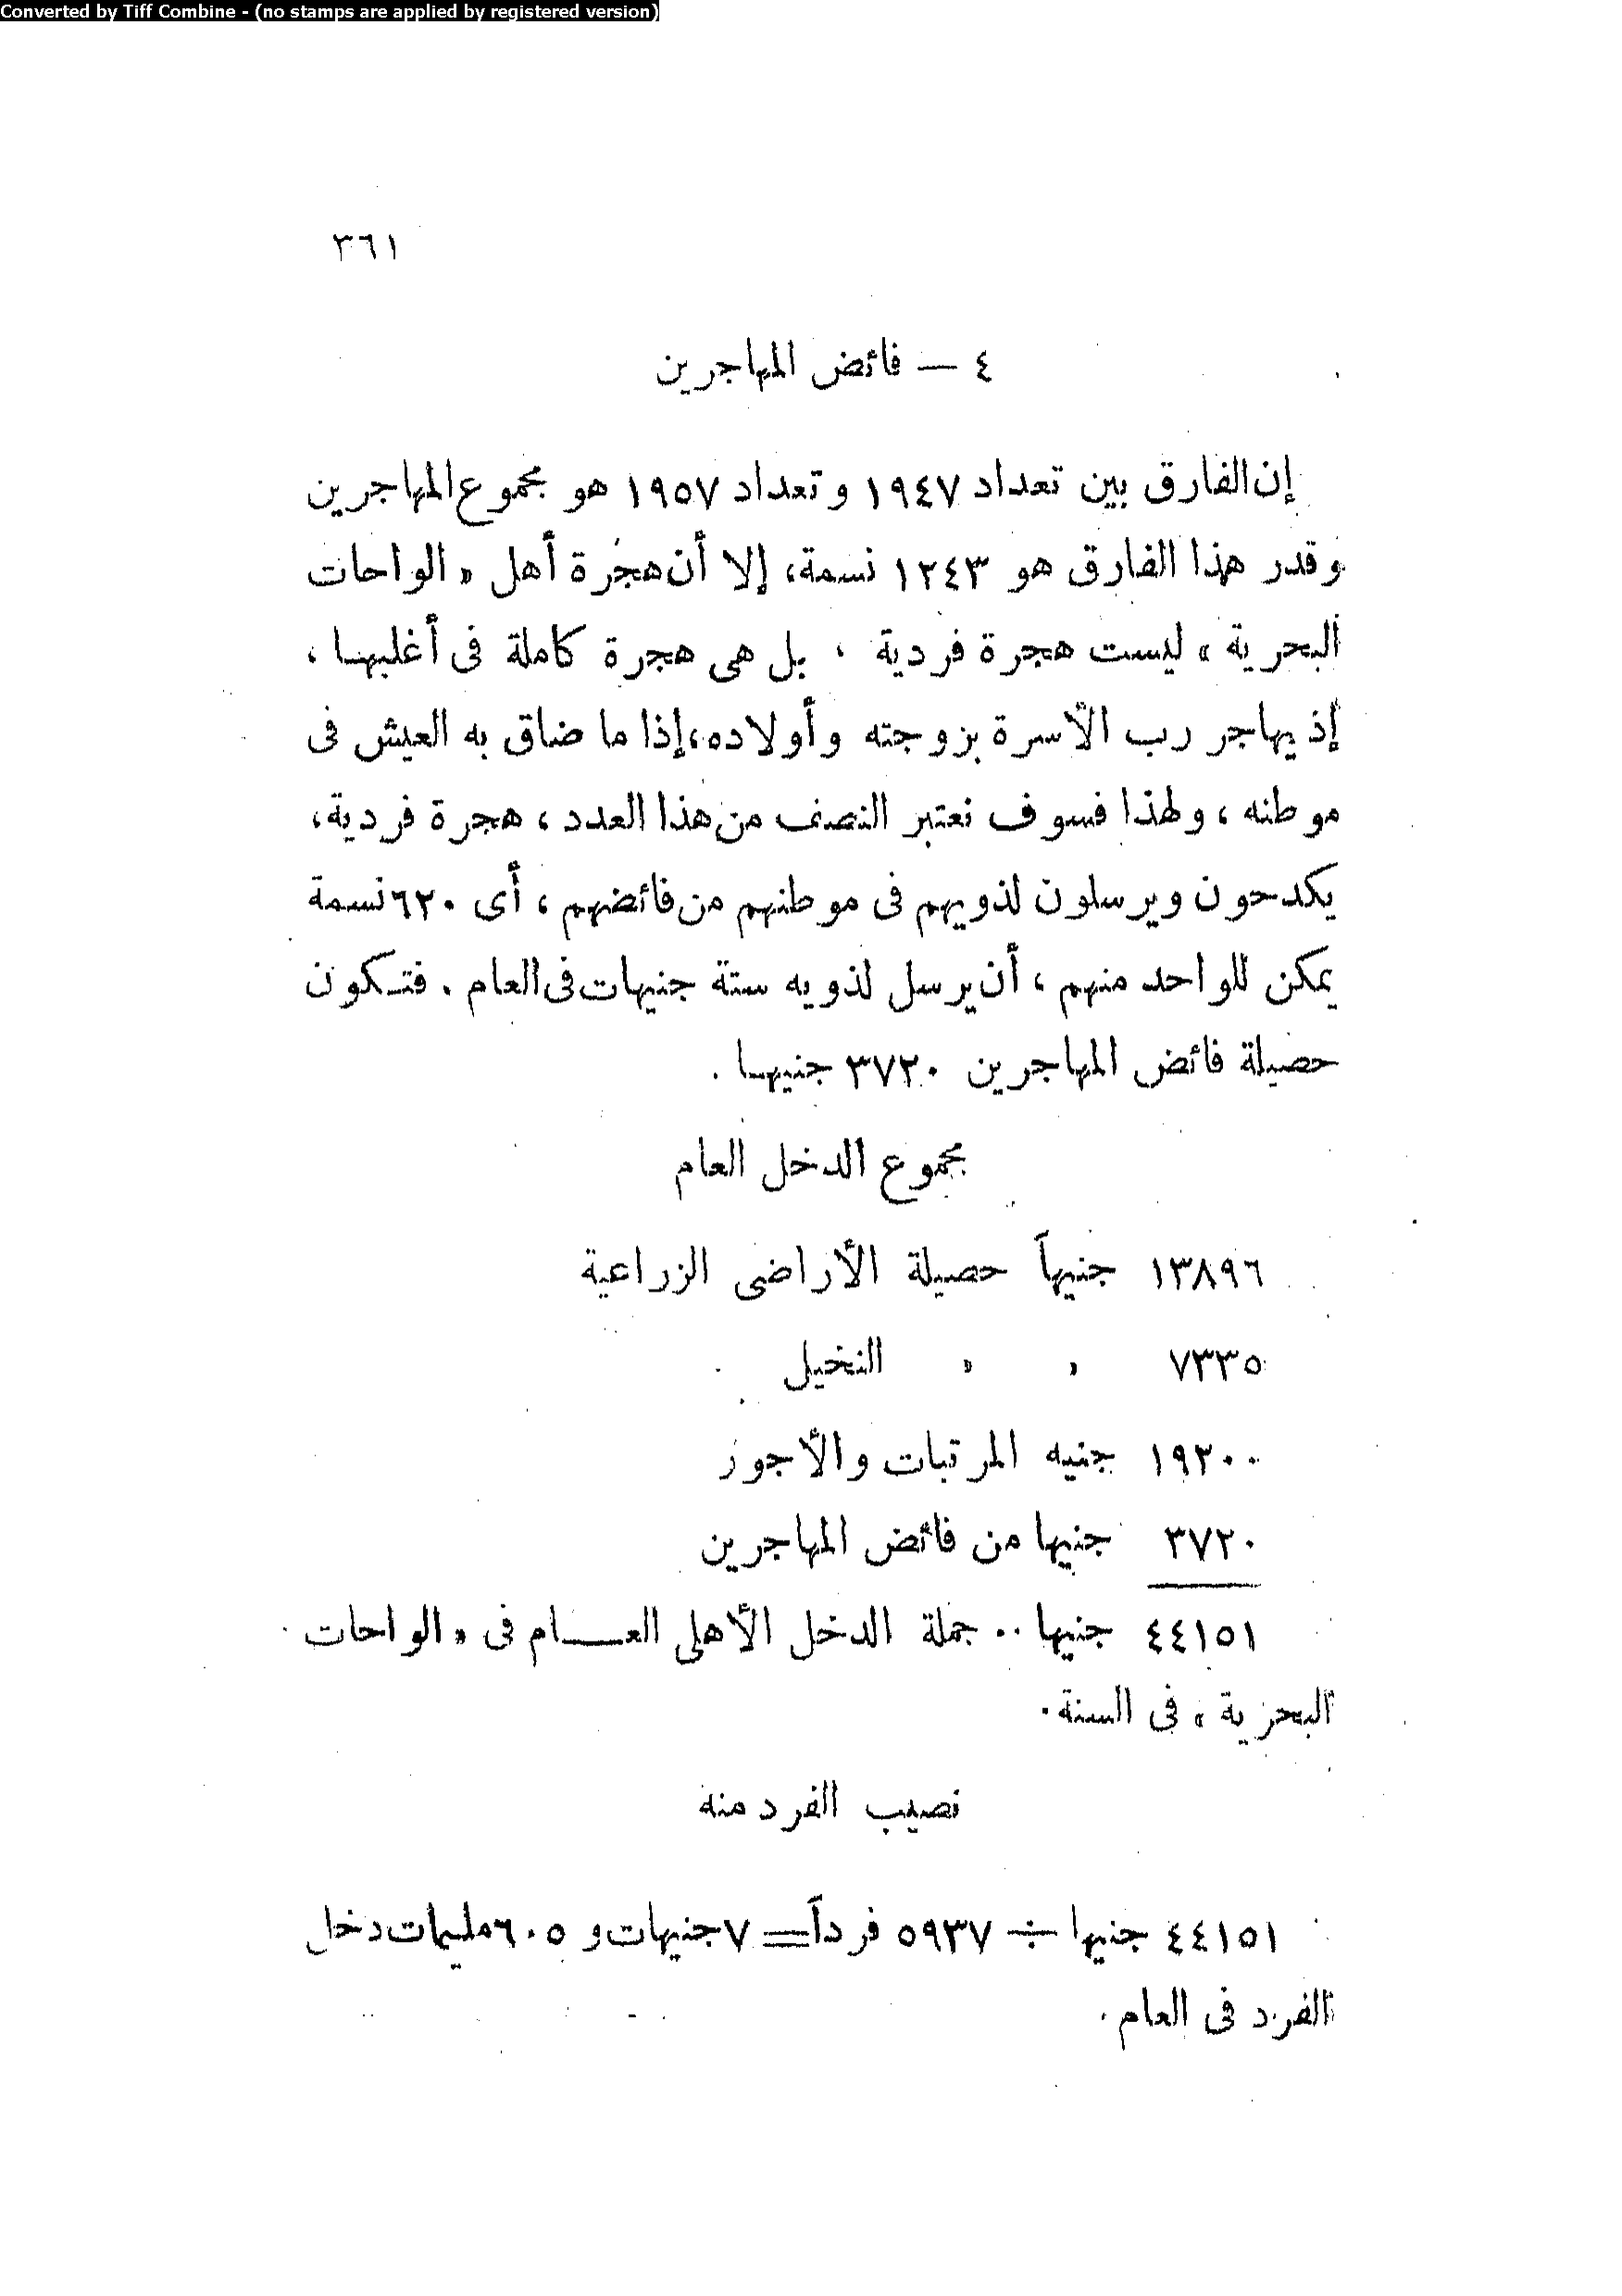 Converted by Tiff Combine - (no stamps are applied by registered version)
٣٦١
٤ — فائض المهاجرين
إن الفارق بين تعداد ١٩٤٧ وتعداد ١٩٥٧ هو مجموع المهاجرين
وقدر هذا الفارق هو ١٢٤٣ نسمة، إلا أن هجرة أهل « الواحات
البحرية » ليست هجرة فردية ، بل هى هجرة كاملة فى أغلبها ،
إذ يهاجر رب الأسرة بزوجته وأولاده، إذا ما ضاق به العيش فى
موطنه ، ولهذا فسوف نعتبر النصف من هذا العدد ، هجرة فردية،
يكدحون ويرسلون لذويهم فى موطنهم من فائضهم ، أى ٦٢٠ نسمة
يمكن للواحد منهم ، أن يرسل لذويه ستة جنيهات فى العام . فتكون
حصيلة فائض المهاجرين ٣٧٢٠ جنيها .
مجموع الدخل العام
١٣٨٩٦ جنيهاً حصيلة الأراضى الزراعية
٧٣٣٥ » » النخيل
١٩٢٠٠ جنيه المرتبات والأجور
٣٧٢٠ جنيها من فائض المهاجرين
٤٤١٥١ جنيها .. جملة الدخل الأهلى العــــام فى « الواحات
البحرية » فى السنة .
نصيب الفرد منه
٤٤١٥١ جنيها ÷ ٥٩٣٧ فرداً = ٧ جنيهات و ٦٠٥ مليمات دخل
الفرد فى العام .